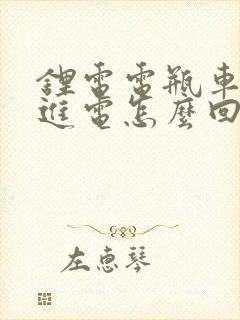 鋰電電瓶車
進電怎麼回
左惠琴